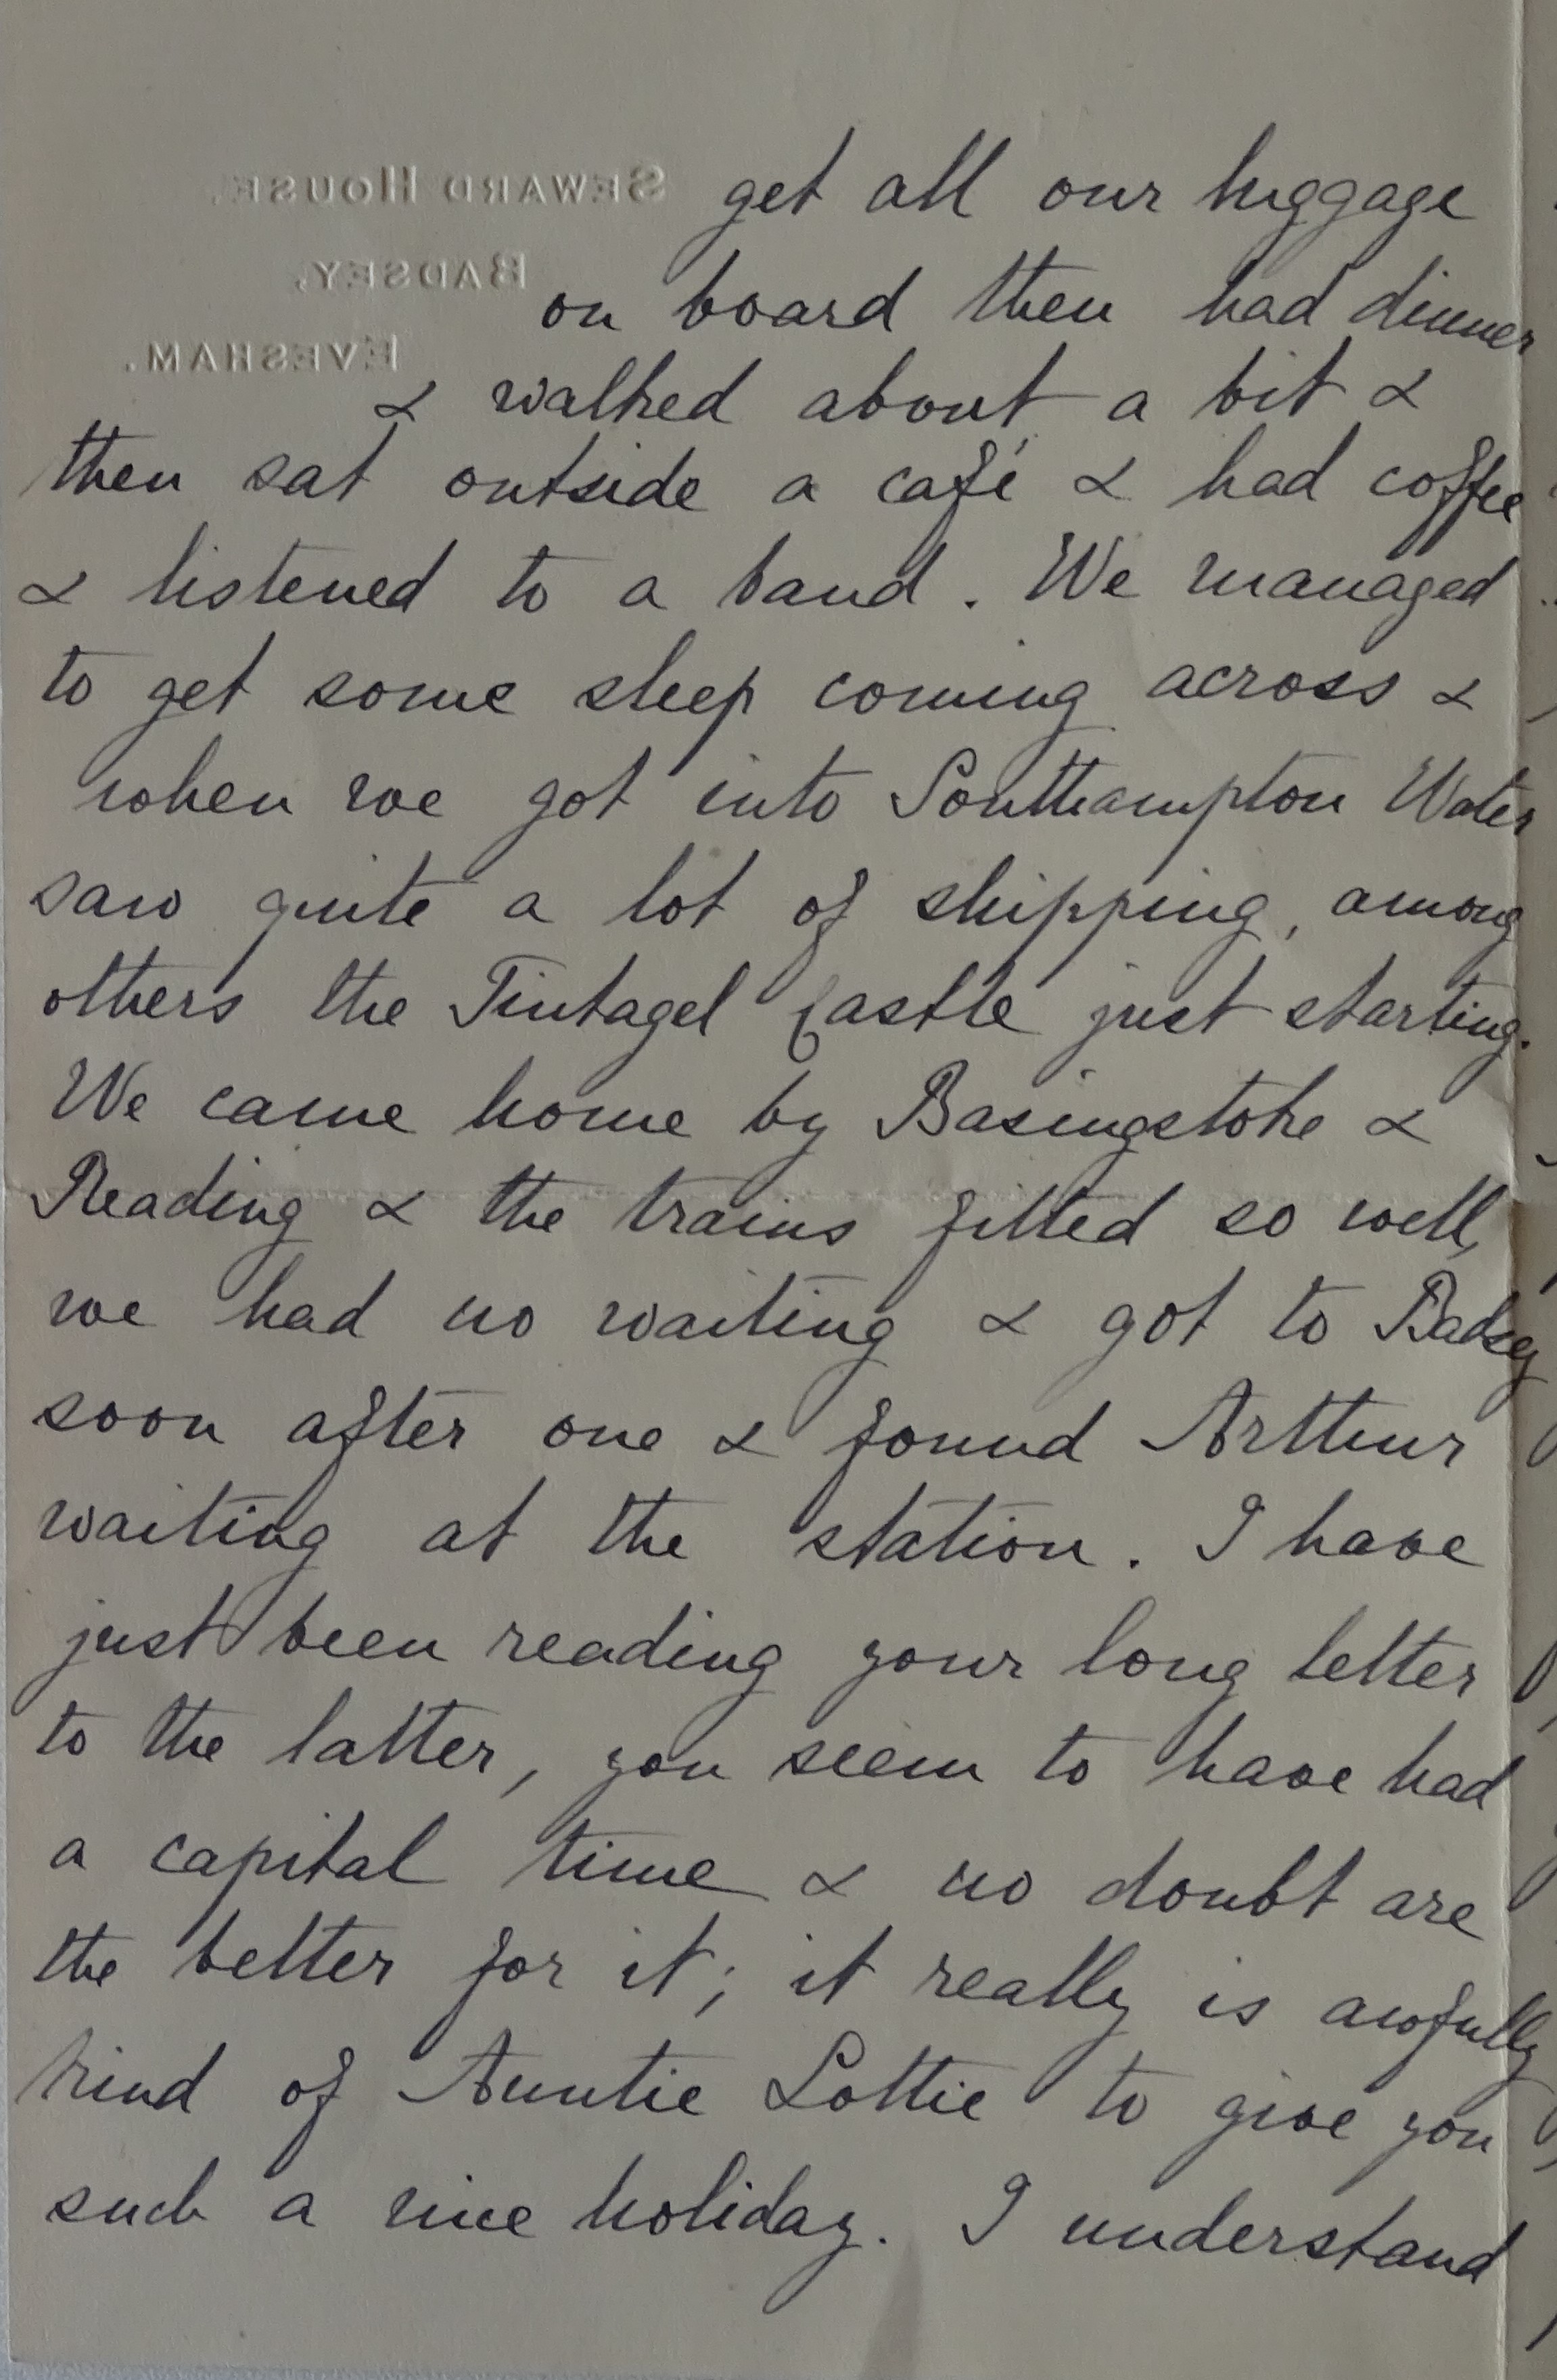 SEWARD HOUSE,
BADSEY,
EVESHAM.
get all our luggage
on board then had dinner
& walked about a bit &
then sat outside a café & had coffee
& listened to a band. We managed
to get some sleep coming across &
when we got into Southampton Water
saw quite a lot of shipping, among
others the Tintagel Castle just starting.
We came home by Basingstoke &
Reading & the trains fitted so well,
we had no waiting & got to Badsey
soon after one & found Arthur
waiting at the station. I have
just been reading your long letter
to the latter, you seem to have had
a capital time & no doubt are
the better for it; it really is awfully
kind of Auntie Lottie to give you
such a nice holiday. I understand